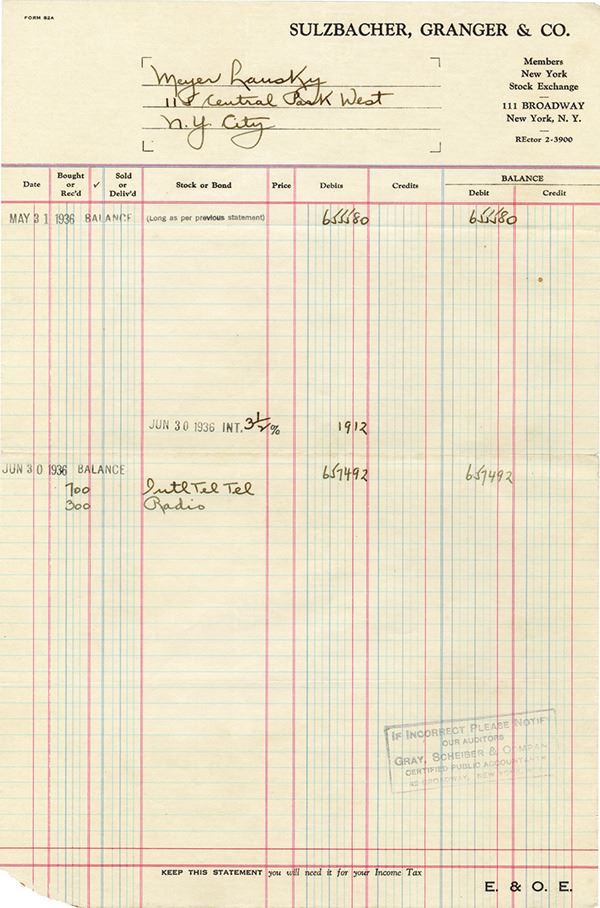 FORM 82A
SULZBACHER, GRANGER & CO.
Meyer Lansky
115 Central Park West
N.Y. City
Members
New York
Stock Exchange
111 BROADWAY
New York, N. Y.
REctor 2-3900
Date Bought or Rec'd ✓ Sold or Deliv'd Stock or Bond Price Debits Credits BALANCE Debit Credit
MAY 31 1936 BALANCE (Long as per previous statement) 655580 655580
JUN 30 1936 INT. 3½ % 1912
JUN 30 1936 BALANCE 657492 657492
700 Intl Tel Tel
300 Radio
IF INCORRECT PLEASE NOTIFY
OUR AUDITORS
GRAY, SCHEIBER & COMPANY
CERTIFIED PUBLIC ACCOUNTANTS
42 BROADWAY, NEW YORK
KEEP THIS STATEMENT you will need it for your Income Tax
E. & O. E.